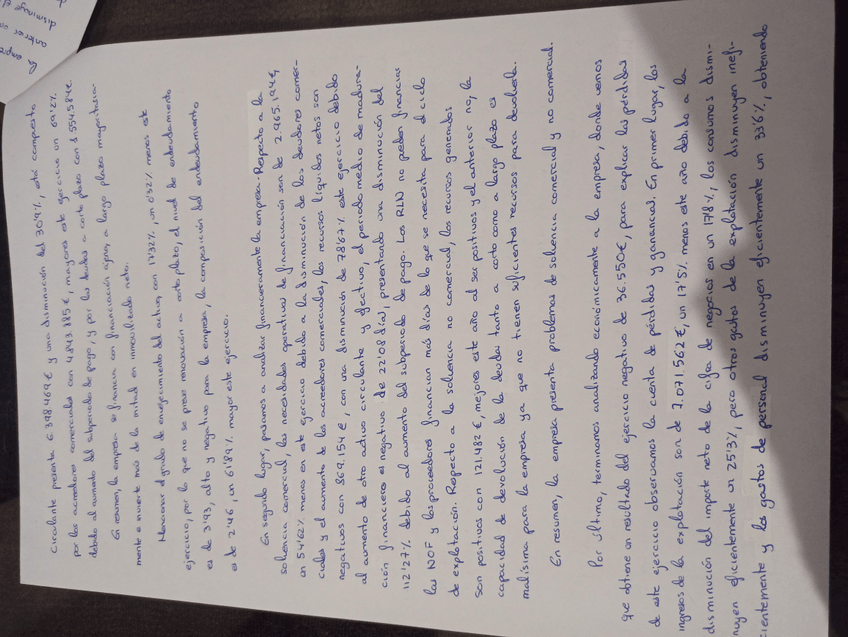 circulante presenta 6.398.469 € y una disminución del 30'9%, está compuesto
por los acreedores comerciales con 4.843.885 €, mayores este ejercicio un 69'2%
debido al aumento del subperiodo de pago, y por las deudas a corto plazo con $ 554.584€.
En resumen, la empresa se financia con financiación ajena, a largo plazo mayoritaria-
mente e invierte más de la mitad en inmovilizado neto.
Mencionar el grado de envejecimiento del activo, con 17'32%, un 6'32% menos este
ejercicio, por lo que no se prevé renovación a corto plazo, el nivel de endeudamiento
es de 3'93, alto y negativo para la empresa, la composición del endeudamiento
es de 2'46, un 61'89% mayor este ejercicio.
En segundo lugar, pasamos a analizar financieramente la empresa. Respecto a la
solvencia comercial, las necesidades operativas de financiación son de 2.965.194 €,
un 54'62% menos en este ejercicio debido a la disminución de los deudores comer-
ciales y el aumento de los acreedores comerciales, los recursos líquidos netos son
negativos con 869.154 €, con una disminución de 78'67% este ejercicio debido
al aumento de otro activo circulante y efectivo, el periodo medio de madura-
ción financiero es negativo de 22'08 días, presentando una disminución del
112'27% debido al aumento del subperiodo de pago. Los RLN no pueden financiar
las NOF y los proveedores financian más días de lo que se necesita para el ciclo
de explotación. Respecto a la solvencia no comercial, los recursos generados
son positivos con 121.482 €, mejores este año al ser positivos y el anterior no, la
capacidad de devolución de la deuda tanto a corto como a largo plazo es
malísima para la empresa ya que no tienen suficientes recursos para devolverla.
En resumen, la empresa presenta problemas de solvencia comercial y no comercial.
Por último, terminamos analizando económicamente a la empresa, donde vemos
que obtiene un resultado del ejercicio negativo de 36.550€, para explicar las pérdidas
de este ejercicio observamos la cuenta de pérdidas y ganancias. En primer lugar, los
ingresos de la explotación son de 7.071.562 €, un 17'5% menos este año debido a la
disminución del importe neto de la cifra de negocios en un 17'8%, los consumos dismi-
nuyen eficientemente un 25'3%, pero otros gastos de la explotación disminuyen inefi-
cientemente y los gastos de personal disminuyen eficientemente un 33'6%, obteniendo